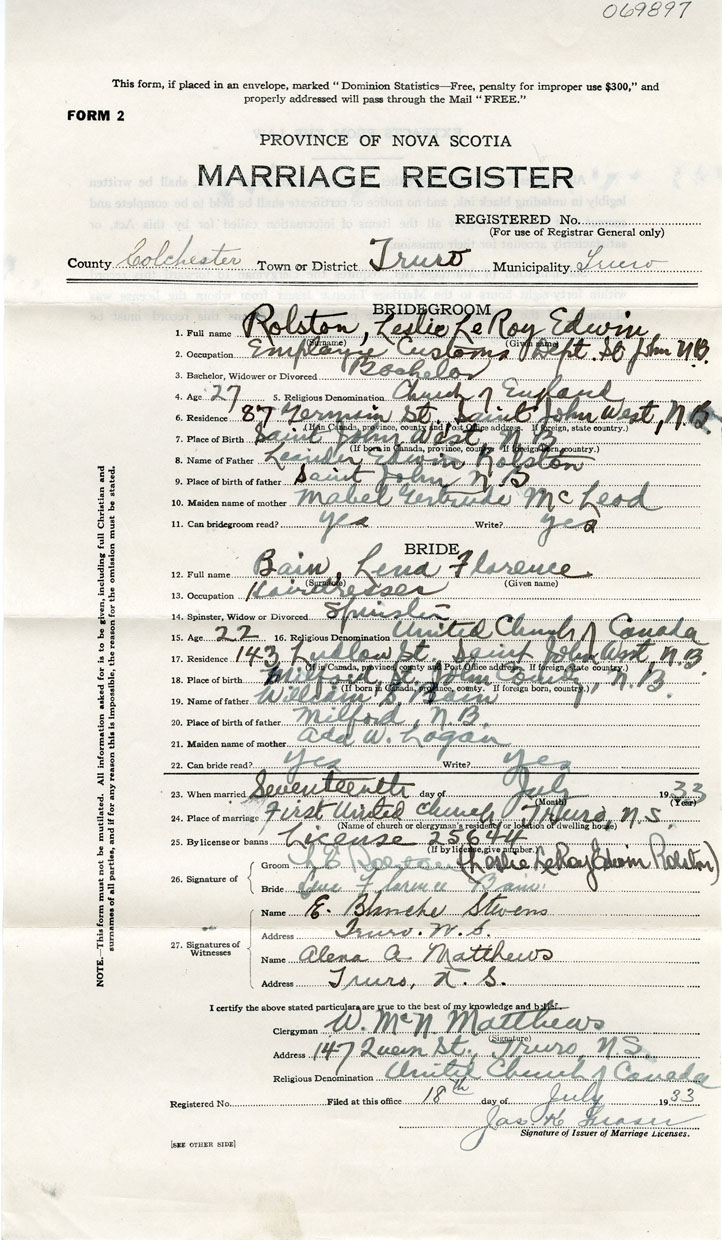 069897
This form, if placed in an envelope, marked "Dominion Statistics—Free, penalty for improper use $300," and
properly addressed will pass through the Mail "FREE."
FORM 2
PROVINCE OF NOVA SCOTIA
MARRIAGE REGISTER
REGISTERED No.
(For use of Registrar General only)
County Colchester Town or District Truro Municipality Truro
BRIDEGROOM
1. Full name Rolston, Leslie LeRoy Edwin
(Surname) (Given name)
2. Occupation Employe Customs Dept. St John N.B.
3. Bachelor, Widower or Divorced Bachelor
4. Age 27 5. Religious Denomination Church of England
6. Residence 87 Germain St, Saint John West, N.B.
(If in Canada, province, county and Post Office address. If foreign, state country.)
7. Place of Birth Saint John West, N.B.
(If born in Canada, province, county. If foreign born, country.)
8. Name of Father Edwin Rolston
9. Place of birth of father Saint John N.S
10. Maiden name of mother Mabel Gertrude McLeod
11. Can bridegroom read? yes Write? yes
BRIDE
12. Full name Bain, Lena Florence
(Surname) (Given name)
13. Occupation Hairdresser
14. Spinster, Widow or Divorced Spinster
15. Age 22 16. Religious Denomination United Church of Canada
17. Residence 143 Ludlow St. Saint John West, N.B.
(If in Canada, province, county and Post Office address. If foreign, state country.)
18. Place of birth Milford, St. John County, N.B.
(If born in Canada, province, county. If foreign born, country.)
19. Name of father William Bain
20. Place of birth of father Milford, N.B.
21. Maiden name of mother Ada W. Logan
22. Can bride read? Yes Write? Yes
23. When married Seventeenth day of July 1933
(Month) (Year)
24. Place of marriage First United Church, Truro, N.S.
(Name of church or clergyman's residence or location of dwelling house)
25. By license or banns License 25644
(If by license, give number.)
26. Signature of
Groom (Leslie LeRoy Edwin Rolston)
Bride Lena Florence Bain
27. Signatures of Witnesses
Name E. Blanche Stevens
Address Truro. N.S.
Name Alena A. Matthews
Address Truro, N.S.
I certify the above stated particulars are true to the best of my knowledge and belief.
Clergyman W. McN Matthews
(Signature)
Address 147 Queen St., Truro, N.S.
Religious Denomination United Church of Canada
Registered No. Filed at this office 18th day of July 1933
Jas. K. Fraser
Signature of Issuer of Marriage Licenses.
[SEE OTHER SIDE]
NOTE.—This form must not be mutilated. All information asked for is to be given, including full Christian and
surnames of all parties, and if for any reason this is impossible, the reason for the omission must be stated.